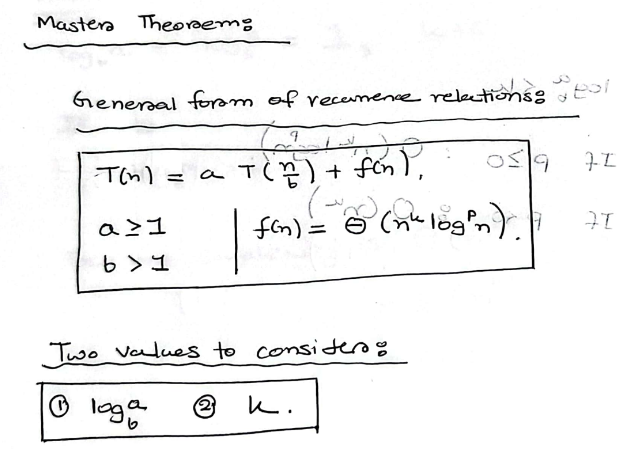 Master Theorem:
General form of recurrence relations:
T(n) = a T(n/b) + f(n),
a ≥ 1 | f(n) = Θ(n^k log^p n).
b > 1
Two values to consider:
① log_b a ② k.